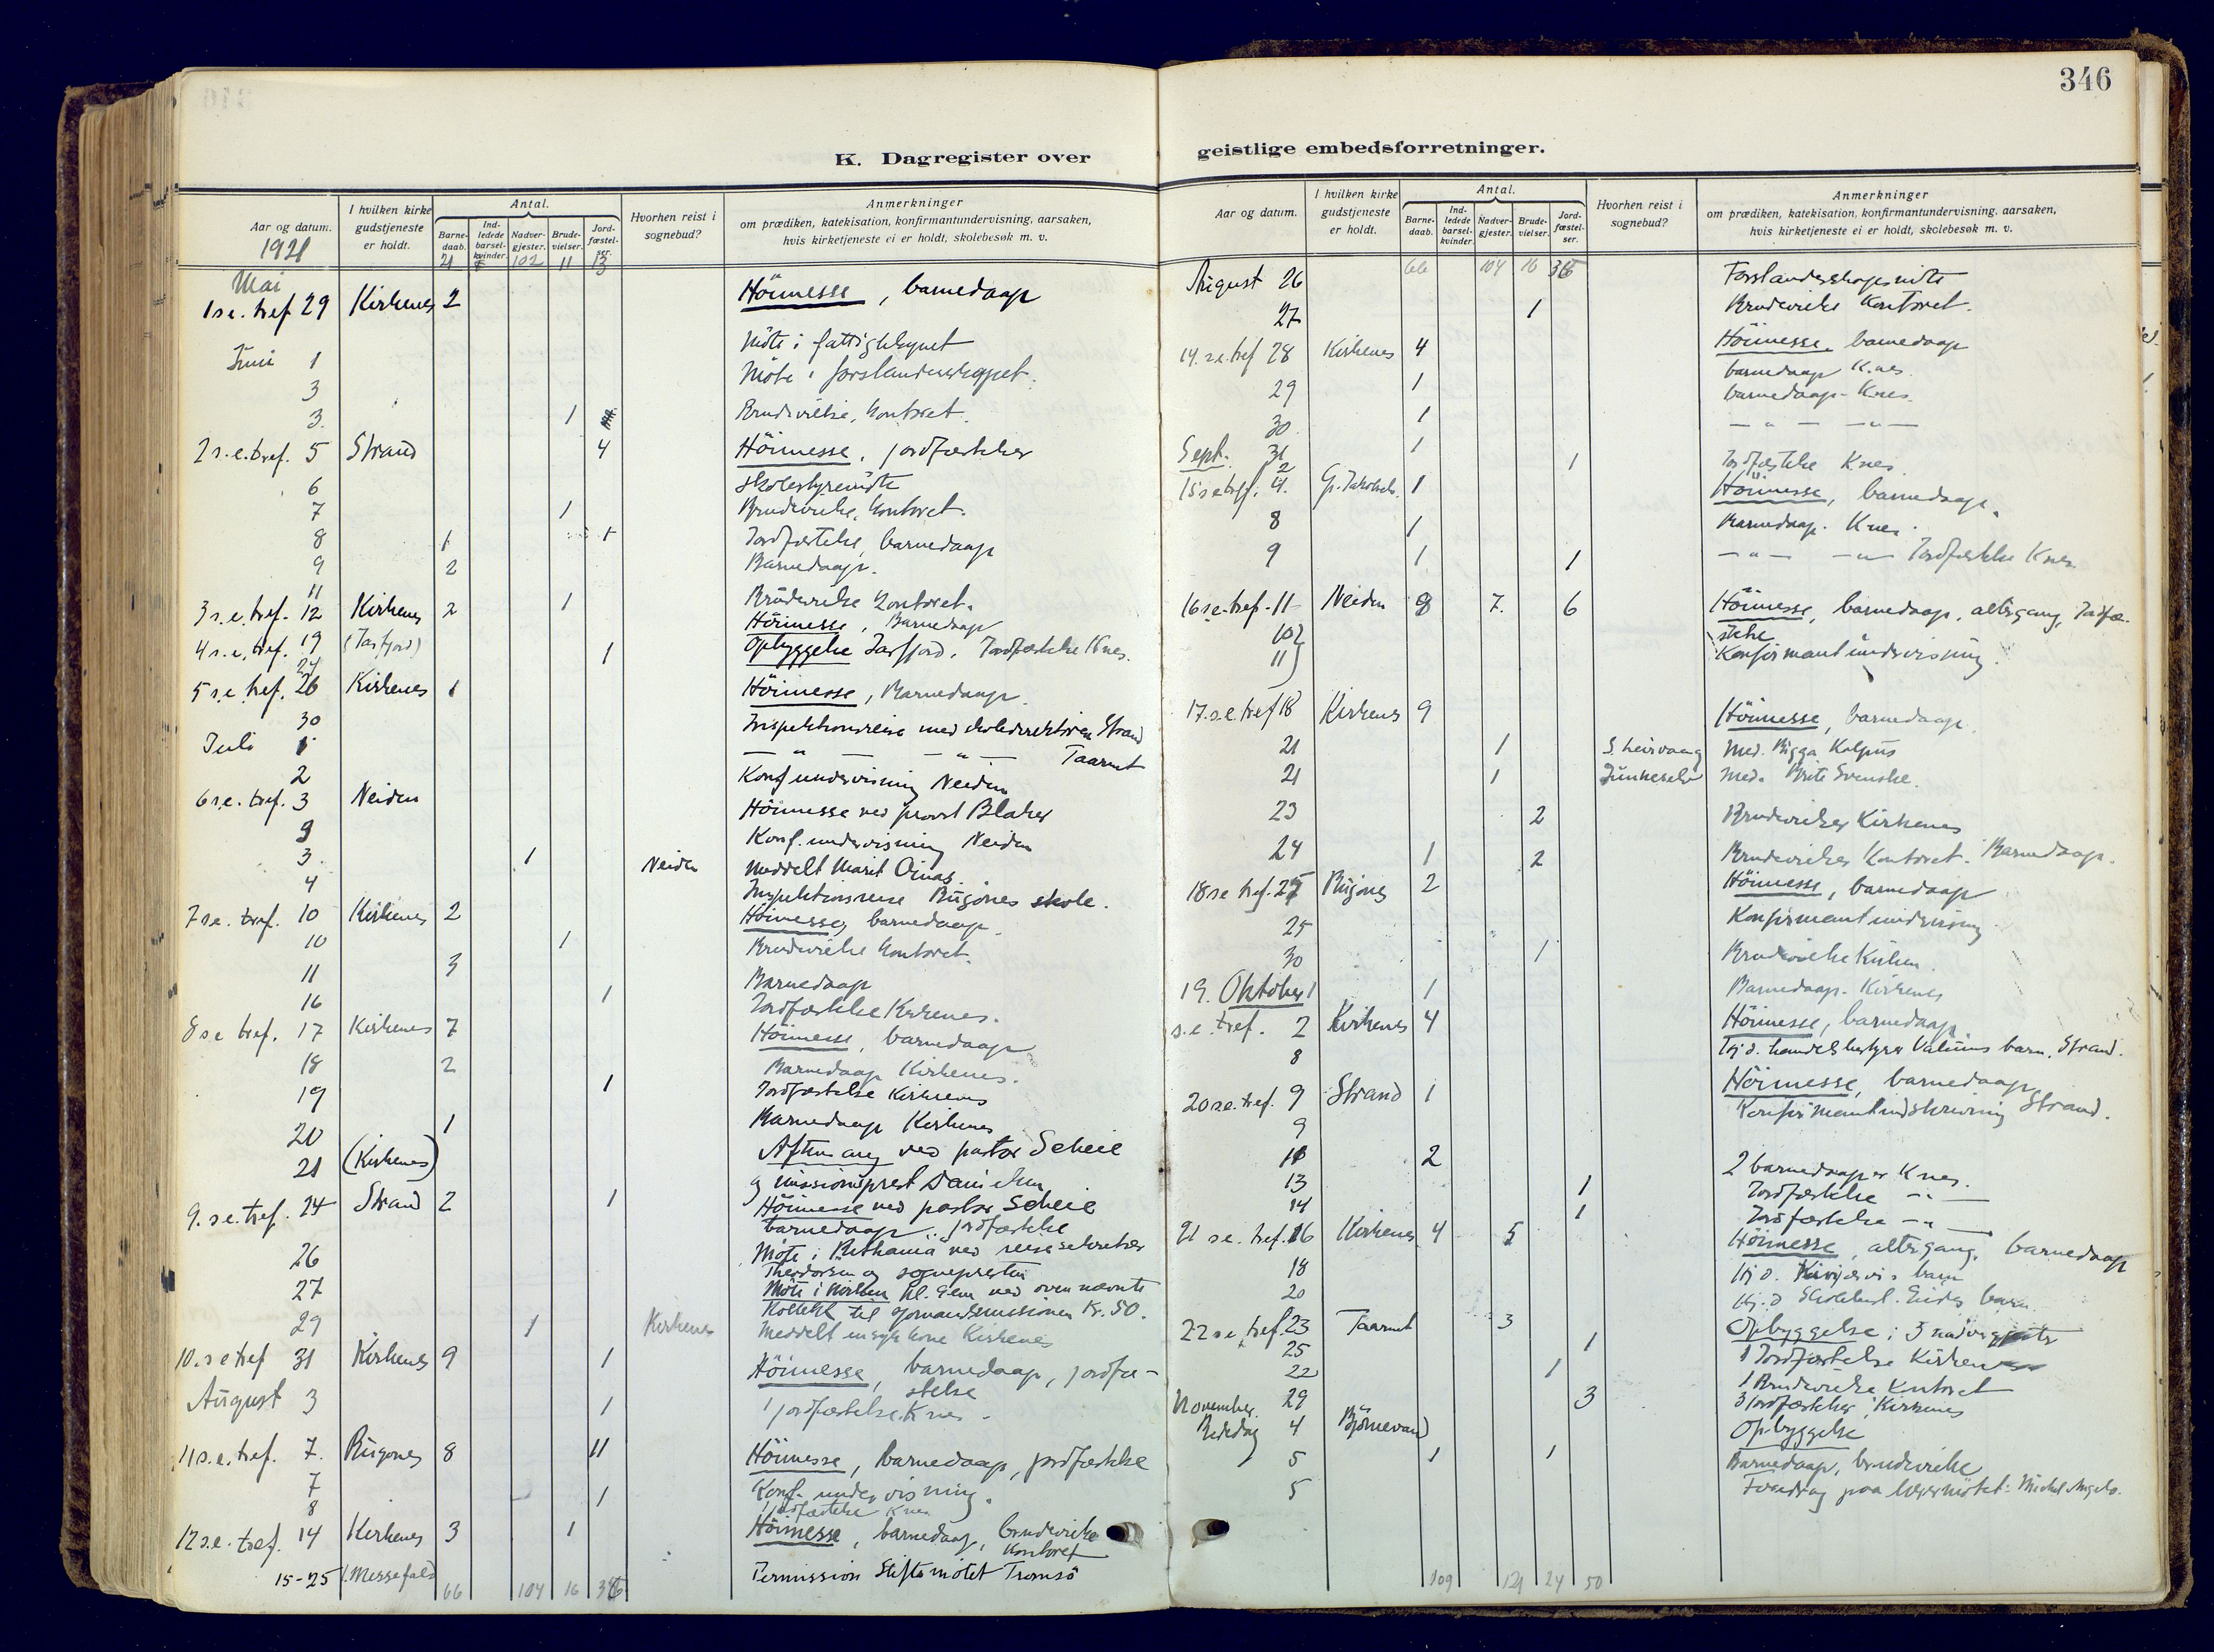 346
K. Dagregister over
geistlige embedsforretninger.
Aar og datum.
I hvilken kirke gudstjeneste er holdt.
Antal.
Barne-daab.
Ind-ledede barsel-kvinder.
Nadver-gjester.
Brude-vielser.
Jord-fæstel-ser.
Hvorhen reist i sognebud?
Anmerkninger
om prædiken, katekisation, konfirmantundervisning, aarsaken,
hvis kirketjeneste ei er holdt, skolebesøk m. v.
1921 21 102 11 13
Mai
1 s.e. tref 29 Kirkenes 2 Höimesse, barnedaap
Juni 1 Möte i fattigstyret
3 Möte i forstanderskapet.
3. 1 Brudevielse, kontoret.
2 s.e. tref. 5 Strand 4 Höimesse, jordfæstelser
6 Skolestyremöte
7 1 Brudevielse, kontoret.
8 1 1 Jordfæstelse, barnedaap
9 2 Barnedaap.
11 1 Brudevielse kontoret.
3 s.e. tref. 12 Kirkenes 2 Höimesse, Barnedaap
4 s.e. tref. 19 (Jarfjord) 1 Opbyggelse Jarfjord. Jordfæstelse Knes.
24
5 s.e. tref. 26 Kirkenes 1 Höimesse, Barnedaap.
30 Inspektionsreise med skoledirektören Strand
Juli 1 — " — — " — Taarnet
2 Konf. undervisning Neiden
6 s.e. tref. 3 Neiden Höimesse ved provst Blaker
3 Konf. undervisning Neiden
3. 1 Neiden Meddelt Marit
4 Inspektionsreise Bugönes skole.
7 s.e. tref. 10 Kirkenes 2 Höimesse, barnedaap.
10 1 Brudevielse kontoret.
11 3 Barnedaap
16 1 Jordfæstelse Kirkenes.
8 s.e. tref. 17 Kirkenes 7 Höimesse, barnedaap
18 2 Barnedaap Kirkenes.
19 1 Jordfæstelse Kirkenes
20 1 Barnedaap Kirkenes
21 (Kirkenes) Aftensang ved pastor Scheie
og missionsprest
9. s.e. tref. 24 Strand 2 1 Höimesse ved pastor Scheie
barnedaap .. jordfæstelse
26 Möte i Bethania ved reisesekretær
Theodorsen og sognepresten
27 Möte i kirken kl. 9 em ved ovennævnte
Kollekt til Kr. 50.
29 1 Kirkenes Meddelt en syk kone Kirkenes
10. s.e. tref 31 Kirkenes 9 1 Höimesse, barnedaap, jordfæ-
stelse
August 3 1 1 jordfæstelse Knes.
11 s.e. tref. 7. Bugönes 8 11 Höimesse, barnedaap, jordfæstelse
7 Konf. undervisning.
8 1 1 jordfæstelse Knes
12 s.e. tref. 14 Kirkenes 3 1 Höimesse, barnedaap, brudevielse
kontoret
15-25 1. Messefald Permission Stiftsmötet Tromsö
66 104 16 36
66 104 16 36
August 26 Forstanderskapsmöte
27 1 Brudevielse kontoret.
14. s.e. tref 28 Kirkenes 4 Höimesse, barnedaap
29 1 barnedaap Knes.
30 1 barnedaap - Knes.
31 1 — " — — " —
Sept. 2 1 Jordfæstelse Knes.
15 s.e. tref. 4. Gr. Jakobselv. 1 Höimesse, barnedaap.
8 1 Barnedaap. Knes.
9 1 1 — " — — " — Jordfæstelse Knes.
16 s.e. tref. 11 Neiden 8 7. 6 Höimesse, barnedaap, altergang, Jordfæ-
stelse
10 }
11 } Konfirmantundervisning.
17. s.e. tref 18 Kirkenes 9 Höimesse, barnedaap.
21 1 Med. Bigga Kalpus
21 1 Med. Brite Svenske.
23 2 Brudevielser Kirkenes
24 1 2 Brudevielser Kontoret. Barnedaap.
18 s.e. tref. 25 Bugönes 2 Höimesse, barnedaap
25 Konfirmantundervisning
30 1 Brudevielse Kirken.
19. Oktober 1 1 Barnedaap. Kirkenes
s.e. tref. 2 Kirkenes 4 Höimesse, barnedaap
8 Hj. d. barn. Strand.
20 s.e. tref. 9 Strand 1 Höimesse, barnedaap
9 Konfirmantindskrivning Strand.
11 2 2 barnedaaper Knes.
13 1 Jordfæstelse — " —
14 1 Jordfæstelse — " —
21 s.e. tref. 16 Kirkenes 4 5 Höimesse, altergang, barnedaap
18 Hj. d. barn
20 Hj. d. barn
22 s.e. tref. 23 Taarnet 3 Opbyggelse; 3 nadvergjester
25 1 1 Jordfæstelse Kirkenes
22 1 1 Brudevielse kontoret
29 3 3 jordfæstelser, Kirkenes
November
Bededag 4 Björnevand Opbyggelse
5 1 1 Barnedaap, brudevielse
5 Foredrag paa lærermötet: Michel Angelo.
109 121 24 50